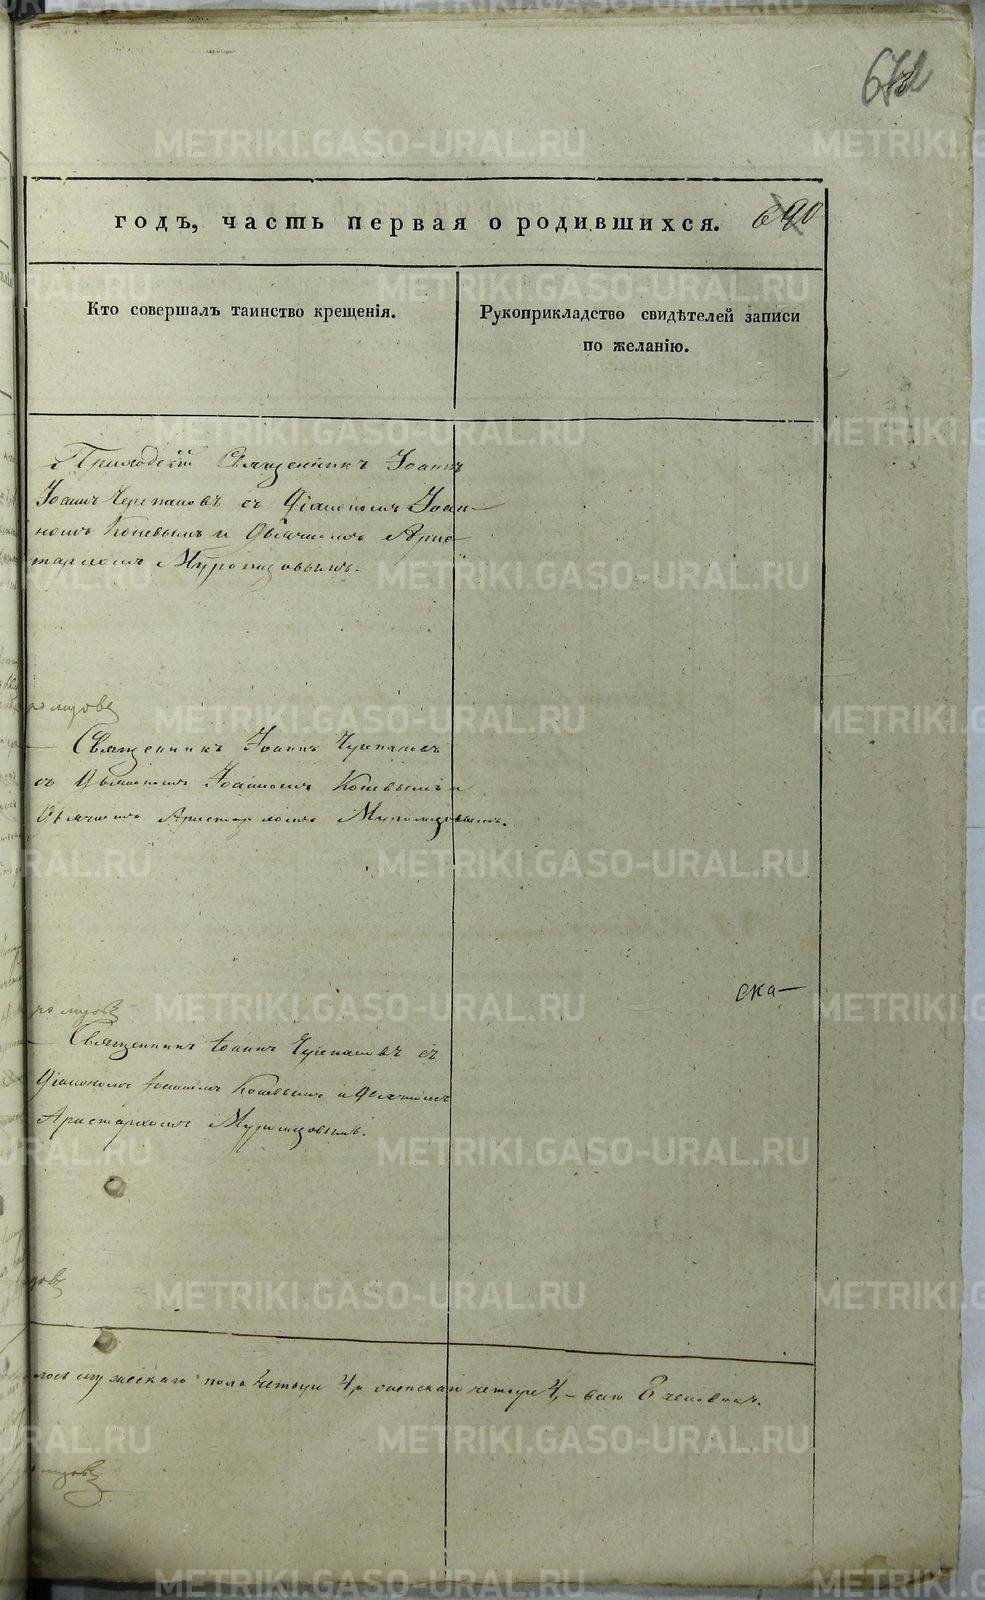 672
годъ, часть первая о родившихся. 690
Кто совершалъ таинство крещенія.
Рукоприкладство свидѣтелей записи
по желанію.
Приходскій Священникъ Іоаннъ
Іоаннъ Черепановъ съ Діакономъ Іоан-
номъ Коневымъ и Дьячкомъ Арис-
тархомъ Муромцовымъ.
ромцовъ
Священникъ Іоаннъ Черепановъ
съ Дьякономъ Іоанномъ Коневымъ и
Дьячкомъ Аристархомъ Муромцовымъ.
ска-
ромцовъ
Священникъ Іоаннъ Черепановъ съ
Діакономъ Іоанномъ Коневымъ и Дьячкомъ
Аристархомъ Муромцовымъ.
цовъ
лось мужескаго пола четыре 4, а женскаго четыре 4, - всего 8 человѣкъ.
мцовъ
METRIKI.GASO-URAL.RU